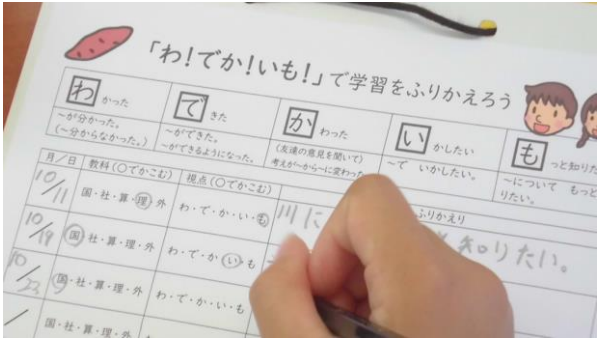 「わ!でか!いも!」で学習をふりかえろう
わ かった
〜が分かった。
(〜分からなかった。)
で きた
〜ができた。
〜ができるようになった。
か わった
(友達の意見を聞いて)
考えが〜から〜に変わった
い かしたい
〜で いかしたい。
も っと知りた
〜について もっと
りたい。
月/日 教科(○でかこむ) 視点(○でかこむ) ふりかえり
10/11 国・社・算・理・外 わ・で・か・い・も 川に 知りたい。
10/19 国・社・算・理・外 わ・で・か・い・も
10/23 国・社・算・理・外 わ・で・か・い・も
/ 国・社・算・理・外